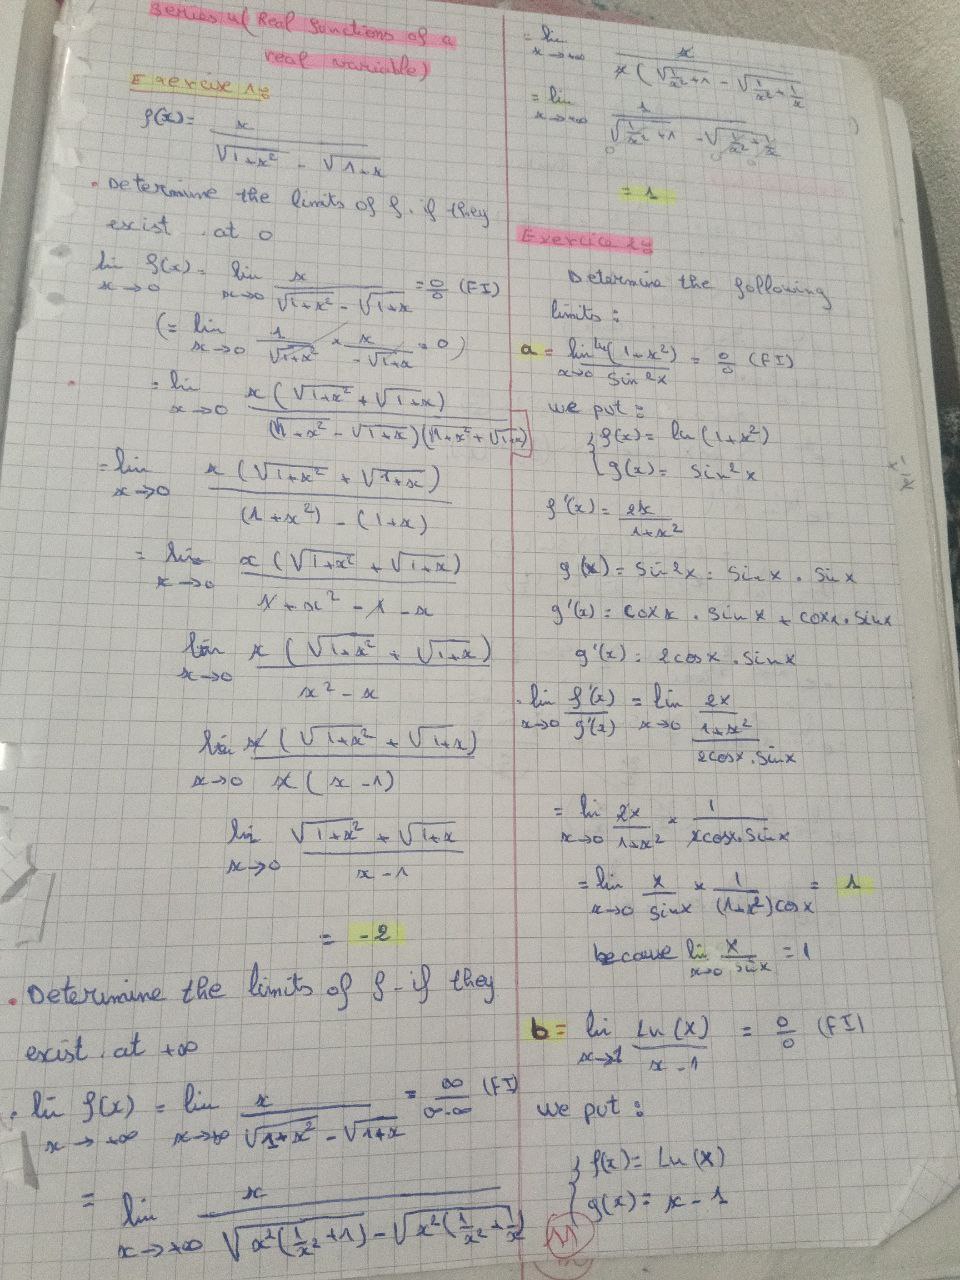 Series 4 (Real functions of a
real variable)
Exercise 1:
f(x) = x / (√(1+x²) - √(1+x))
• Determine the limits of f. if they
exist . at 0
lim x→0 f(x) = lim x→0 x / (√(1+x²) - √(1+x)) = 0/0 (FI)
(= lim x→0 1/√(1+x²) × x/(-√(1+x)) = 0)
= lim x→0 x(√(1+x²) + √(1+x)) / (√(1+x²) - √(1+x))(√(1+x²) + √(1+x))
= lim x→0 x(√(1+x²) + √(1+x)) / ((1+x²) - (1+x))
= lim x→0 x(√(1+x²) + √(1+x)) / (1 + x² - 1 - x)
lim x→0 x(√(1+x²) + √(1+x)) / (x² - x)
lim x→0 x(√(1+x²) + √(1+x)) / x(x - 1)
lim x→0 (√(1+x²) + √(1+x)) / (x - 1)
= -2
• Determine the limits of f - if they
exist . at +∞
• lim x→+∞ f(x) = lim x→+∞ x / (√(1+x²) - √(1+x)) = ∞/∞-∞ (FI)
= lim x→+∞ x / (√(x²(1/x² + 1)) - √(x²(1/x² + 1/x)))
= lim x→+∞ x / x(√(1/x² + 1) - √(1/x² + 1/x))
= lim x→+∞ 1 / (√(1/x² + 1) - √(1/x² + 1/x))
0 0 0
= 1
Exercice 2:
Determine the following
limits :
a = lim x→0 ln(1+x²) / sin²x = 0/0 (FI)
we put :
{ f(x) = ln(1+x²)
g(x) = sin²x
f'(x) = 2x / (1+x²)
g(x) = sin²x = sinx . sinx
g'(x) = cosx . sinx + cosx . sinx
g'(x) = 2cosx . sinx
• lim x→0 f'(x)/g'(x) = lim x→0 (2x/(1+x²)) / (2cosx . sinx)
= lim x→0 2x/(1+x²) × 1/(2cosx . sinx)
= lim x→0 x/sinx × 1/((1+x²)cosx) = 1
because lim x→0 x/sinx = 1
b = lim x→1 Ln(x) / (x - 1) = 0/0 (FI)
we put :
{ f(x) = Ln(x)
g(x) = x - 1